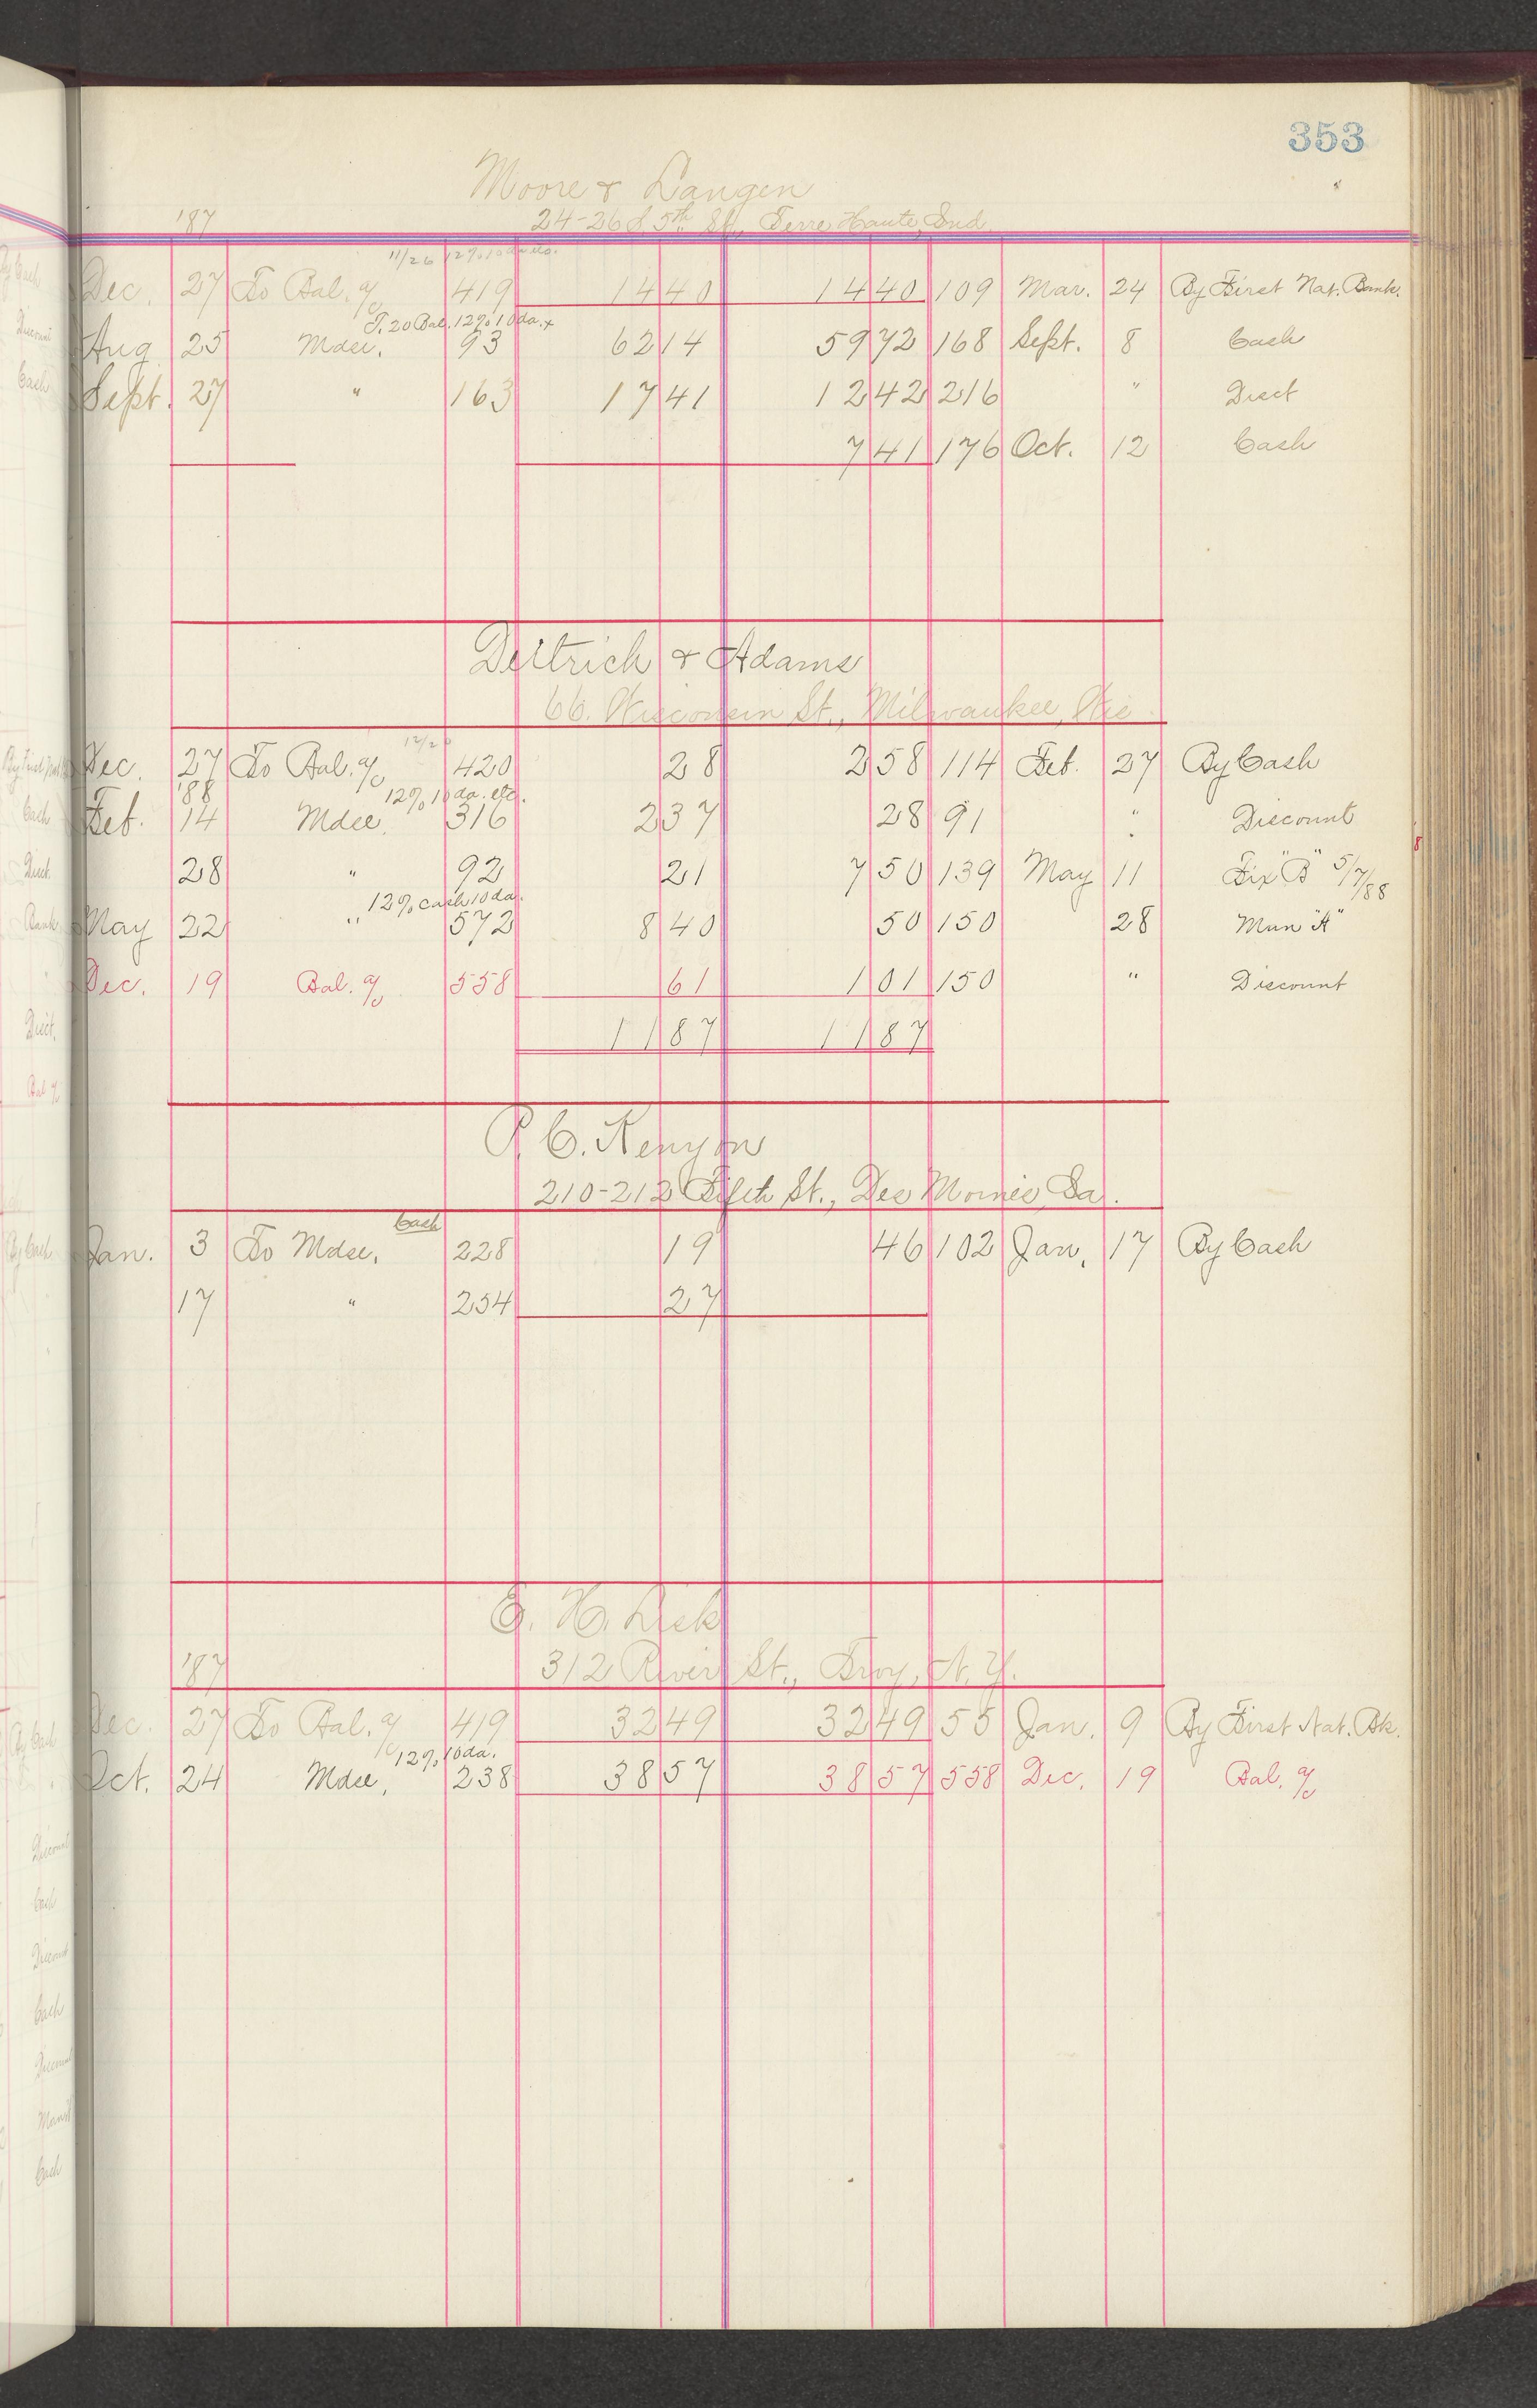 353
Moore & Langen
'87 24-26 S 5th St., Terre Haute, Ind.
11/26 12% 10 da
Dec. 27 To Bal. a/c 419 14 40 14 40 109 Mar. 24 By First Nat. Bank.
T. 20 Bal. 12% 10 da. +
Aug 25 Mdse. 93 62 14 59 72 168 Sept. 8 Cash
Sept. 27 " 163 17 41 12 42 216 " Disct
7 41 176 Oct. 12 Cash
Deitrich & Adams
66. Wisconsin St., Milwaukee, Wis.
12/20
Dec. 27 To Bal. a/c 420 28 2 58 114 Feb. 27 By Cash
'88 12% 10 da. etc.
Feb. 14 Mdse. 316 2 37 28 91 " Discount
28 " 92 21 7 50 139 May 11 Fix "B" 5/7/88
12% cash 10 da.
May 22 " 572 8 40 50 150 28 Mun "A"
Dec. 19 Bal. a/c 558 61 1 01 150 " Discount
11 87 11 87
P. C. Kenyon
210-212 Fifth St., Des Moines, Ia.
Cash
Jan. 3 To Mdse. 228 19 46 102 Jan. 17 By Cash
17 " 254 27
E. H. Lisk
'87 312 River St., Troy, N.Y.
Dec. 27 To Bal. a/c 419 32 49 32 49 55 Jan. 9 By First Nat. Bk.
12% 10 da.
Oct. 24 Mdse. 238 38 57 38 57 558 Dec. 19 Bal. a/c